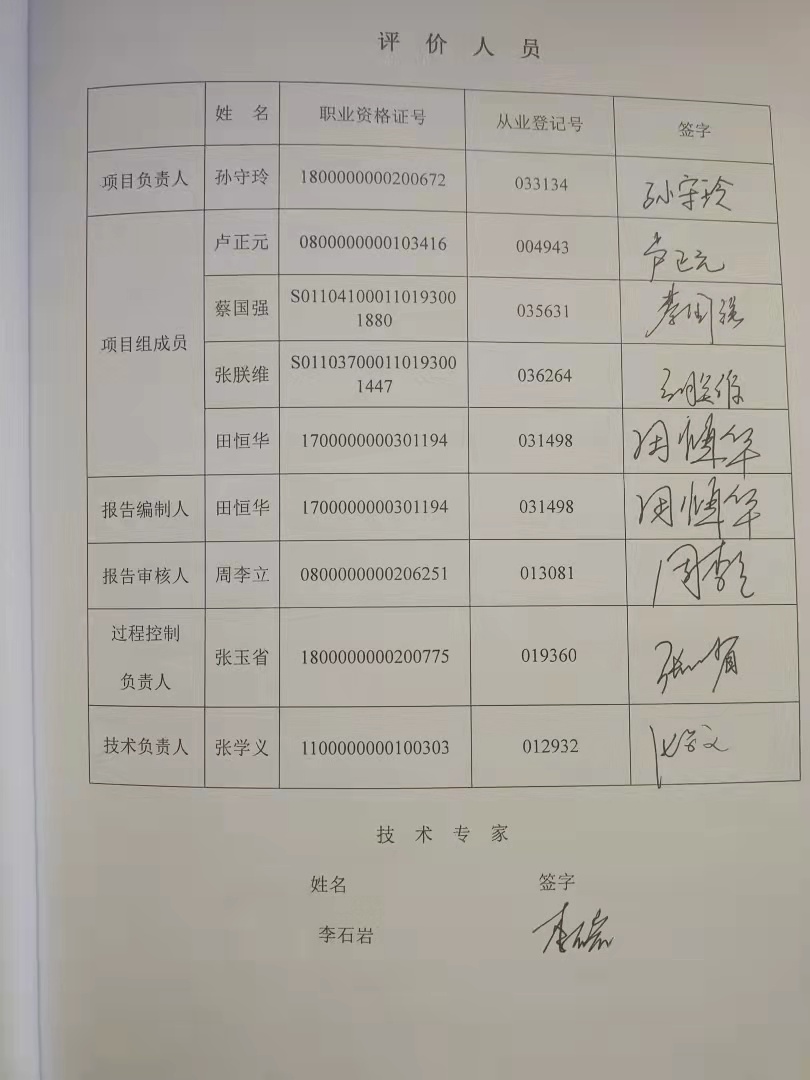 评 价 人 员
姓 名 职业资格证号 从业登记号 签字
项目负责人 孙守玲 1800000000200672 033134 孙守玲
项目组成员
卢正元 0800000000103416 004943 卢正元
蔡国强 S011041000110193001880 035631 蔡国强
张朕维 S011037000110193001447 036264 张朕维
田恒华 1700000000301194 031498 田恒华
报告编制人 田恒华 1700000000301194 031498 田恒华
报告审核人 周李立 0800000000206251 013081 周李立
过程控制
负责人 张玉省 1800000000200775 019360 张玉省
技术负责人 张学义 1100000000100303 012932 张学义
技 术 专 家
姓名 签字
李石岩 李石岩